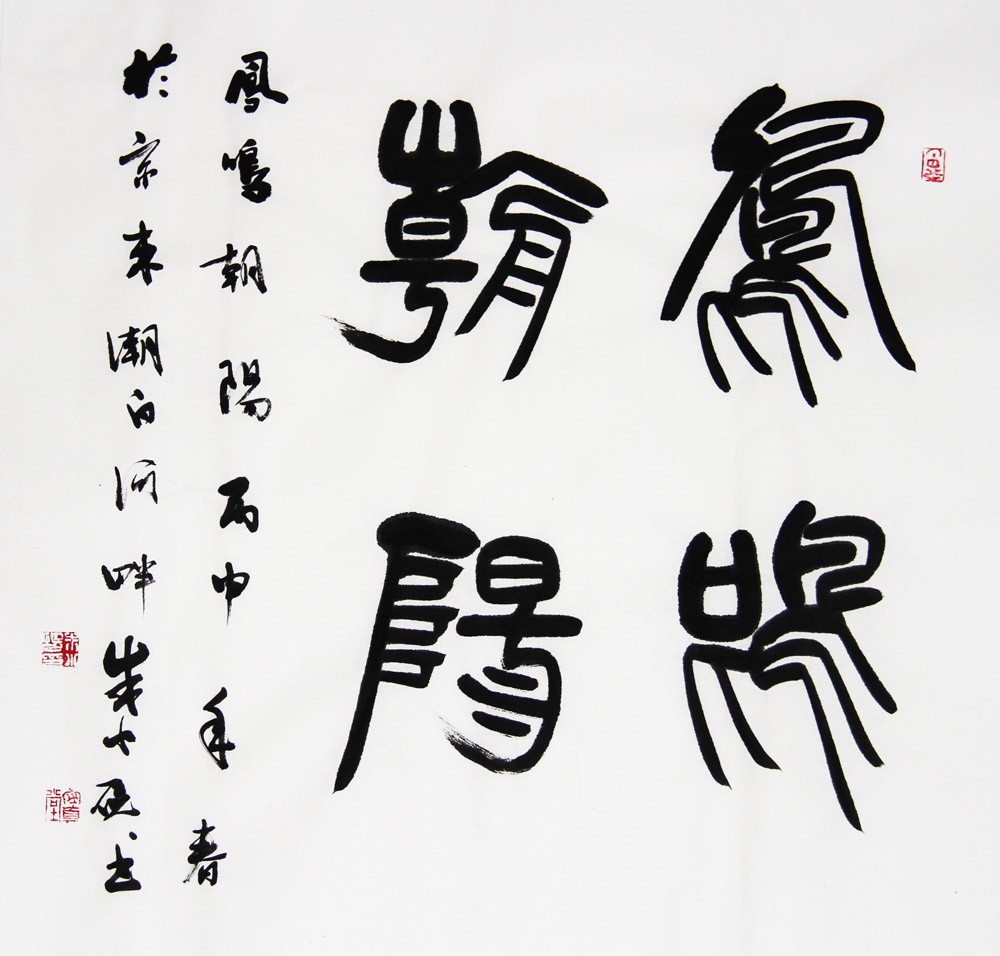 鳳鳴
朝陽
鳳鳴朝陽丙申年春
於京東潮白河畔朱小砚书